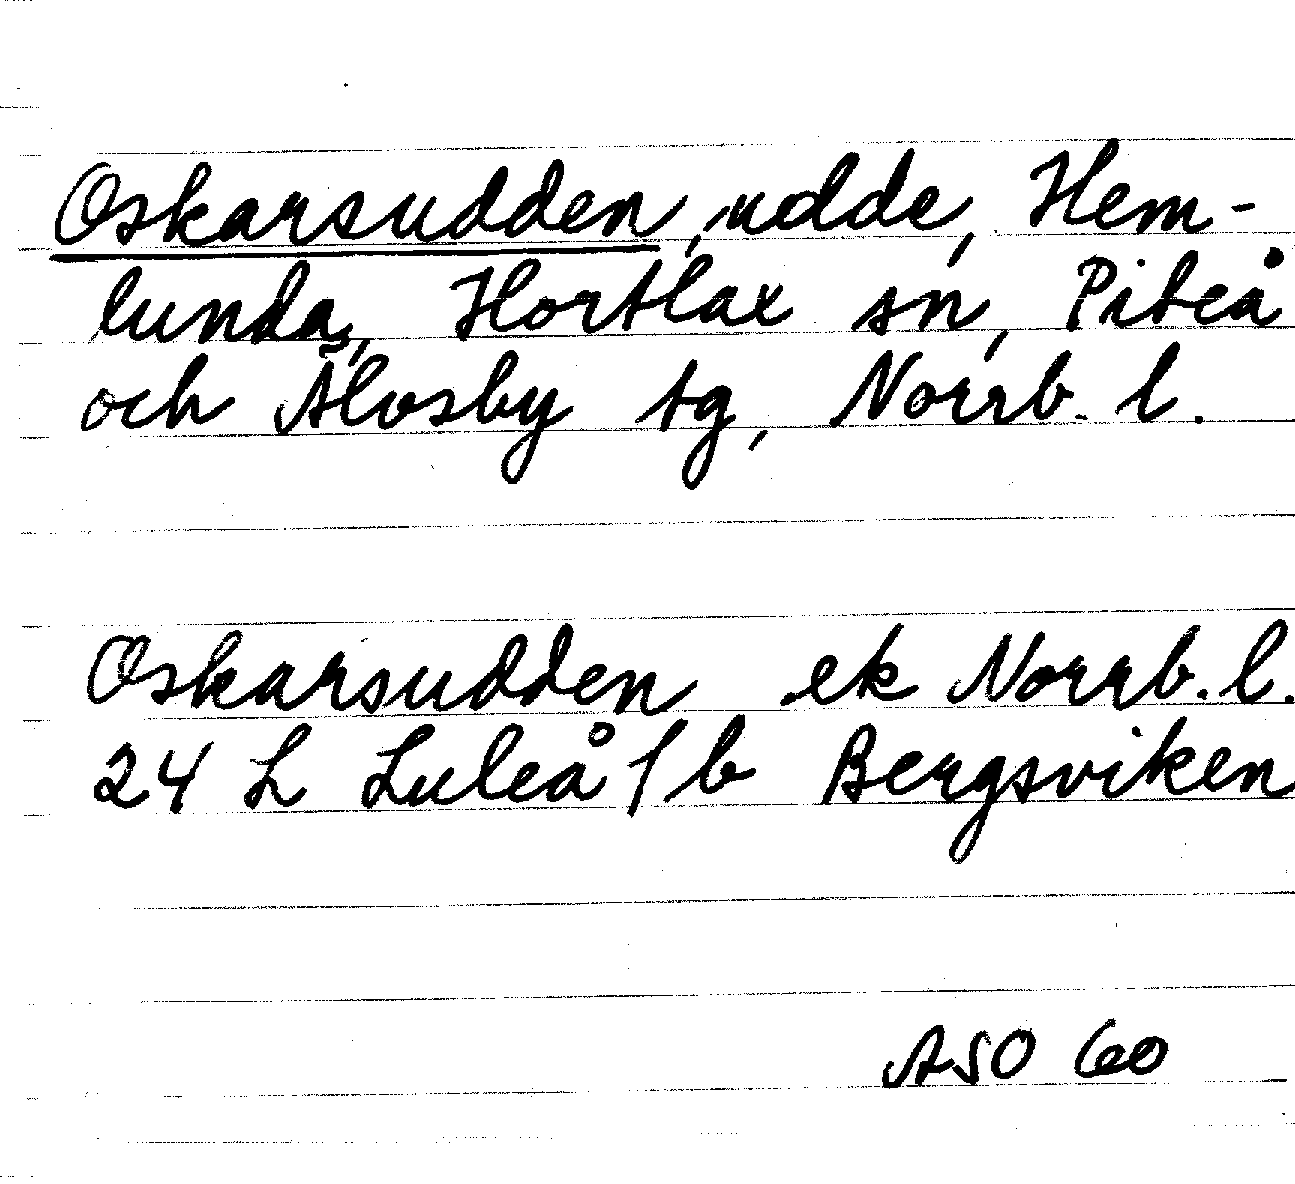 Oskarsudden, udde, Hem-
lunda, Hortlax sn, Piteå
och Älvsby tg, Norrb. l.
Oskarsudden ek Norrb. l.
24 L Luleå f b Bergsviken
ASO 60